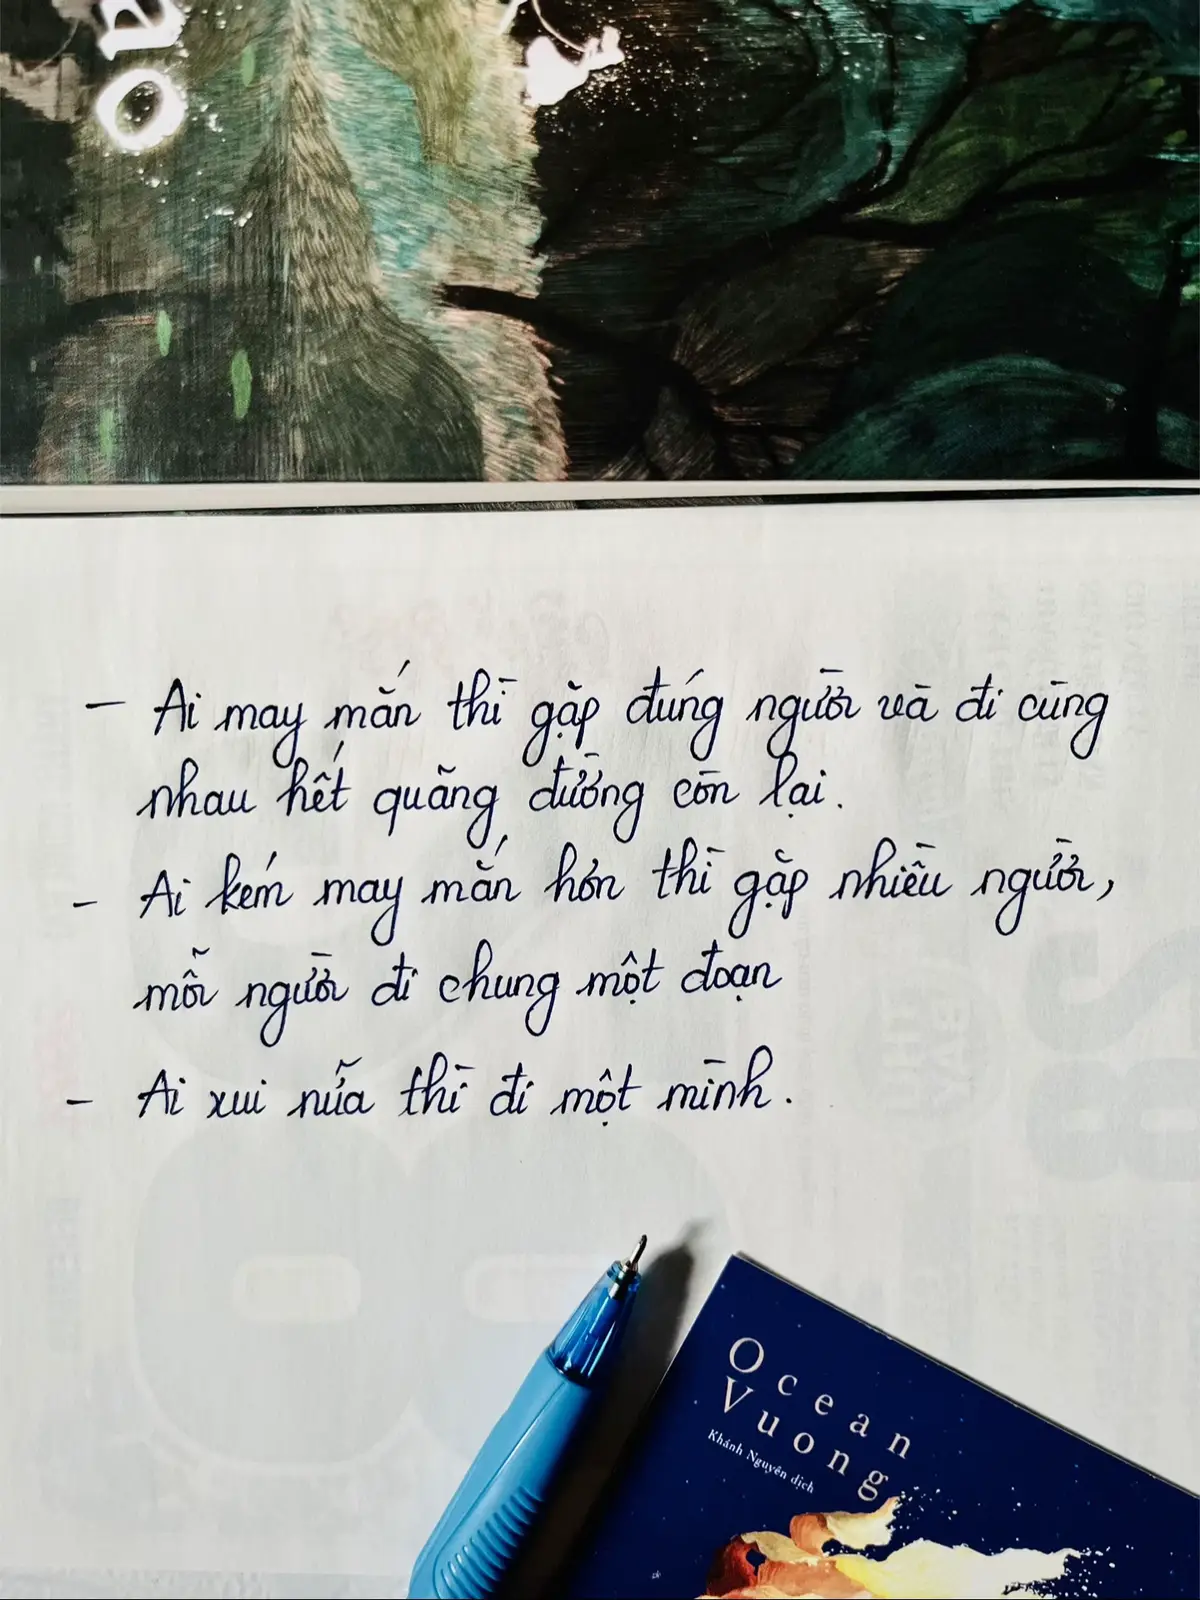 — Ai may mắn thì gặp đúng người và đi cùng
nhau hết quãng đường còn lại.
- Ai kém may mắn hơn thì gặp nhiều người,
mỗi người đi chung một đoạn
- Ai xui nữa thì đi một mình.
Ocean
Vuong
Khánh Nguyên dịch